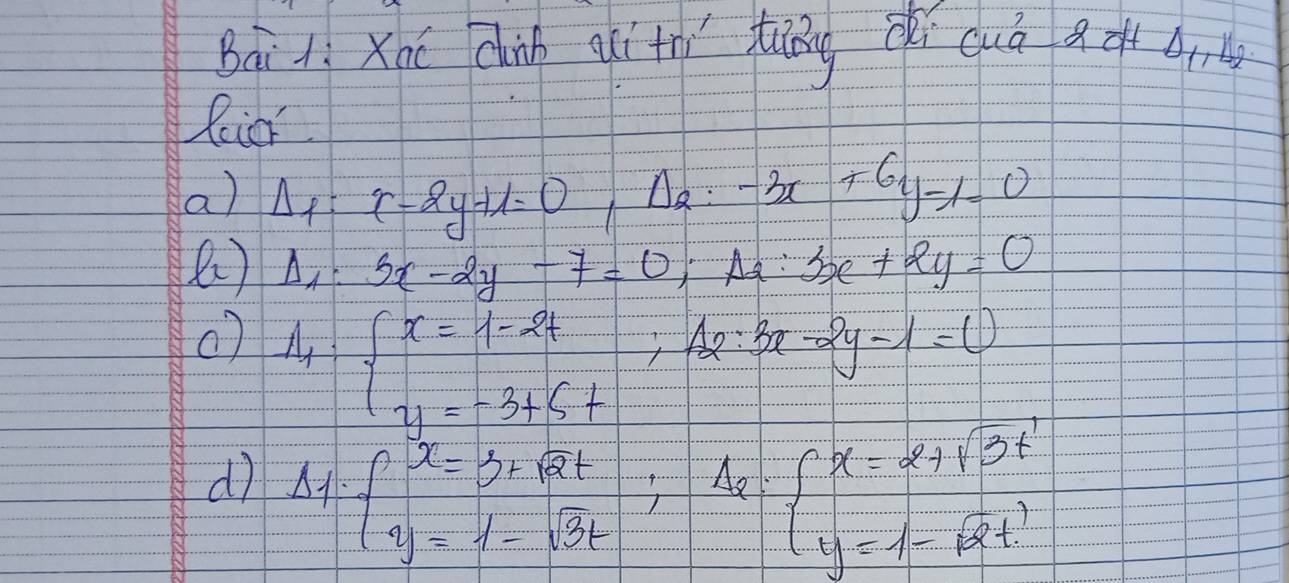 Bài 1: Xác định vị trí tương đối của 2 đt Δ1, Δ2
a) Δ1: x - 2y + 1 = 0, Δ2: -3x + 6y - 1 = 0
b) Δ1: 3x - 2y - 7 = 0; Δ2: 3x + 2y = 0
c) Δ1: { x = 1 - 2t ; Δ2: 3x - 2y - 1 = 0
y = -3 + 5t
d) Δ1: { x = 3 + √2t ; Δ2: { x = 2 + √3t'
y = 1 - √3t y = 1 - √2t'